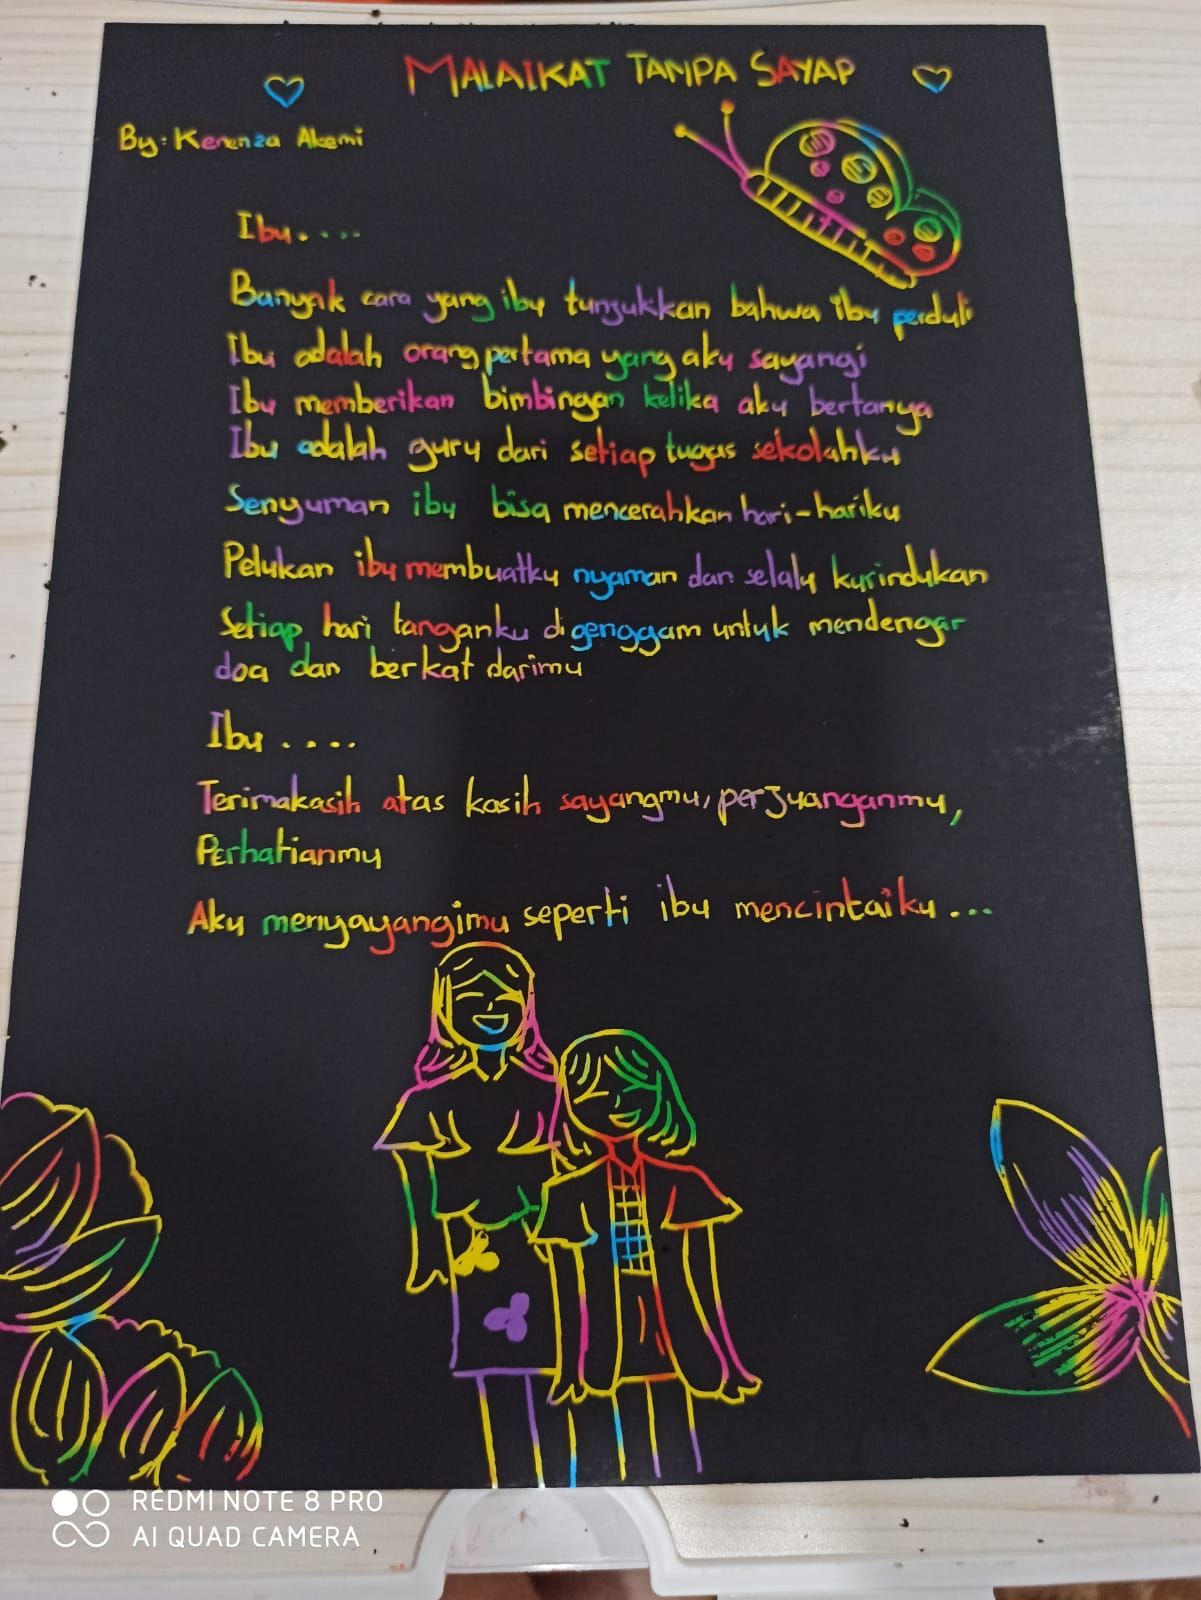 MALAIKAT TANPA SAYAP
By: Kerenza Akemi
Ibu....
Banyak cara yang ibu tunjukkan bahwa ibu perduli
Ibu adalah orang pertama yang aku sayangi
Ibu memberikan bimbingan ketika aku bertanya
Ibu adalah guru dari setiap tugas sekolahku
Senyuman ibu bisa mencerahkan hari-hariku
Pelukan ibu membuatku nyaman dan selalu kurindukan
Setiap hari tanganku digenggam untuk mendengar
doa dan berkat darimu
Ibu....
Terimakasih atas kasih sayangmu, perjuanganmu,
Perhatianmu
Aku menyayangimu seperti ibu mencintaiku...
REDMI NOTE 8 PRO
AI QUAD CAMERA